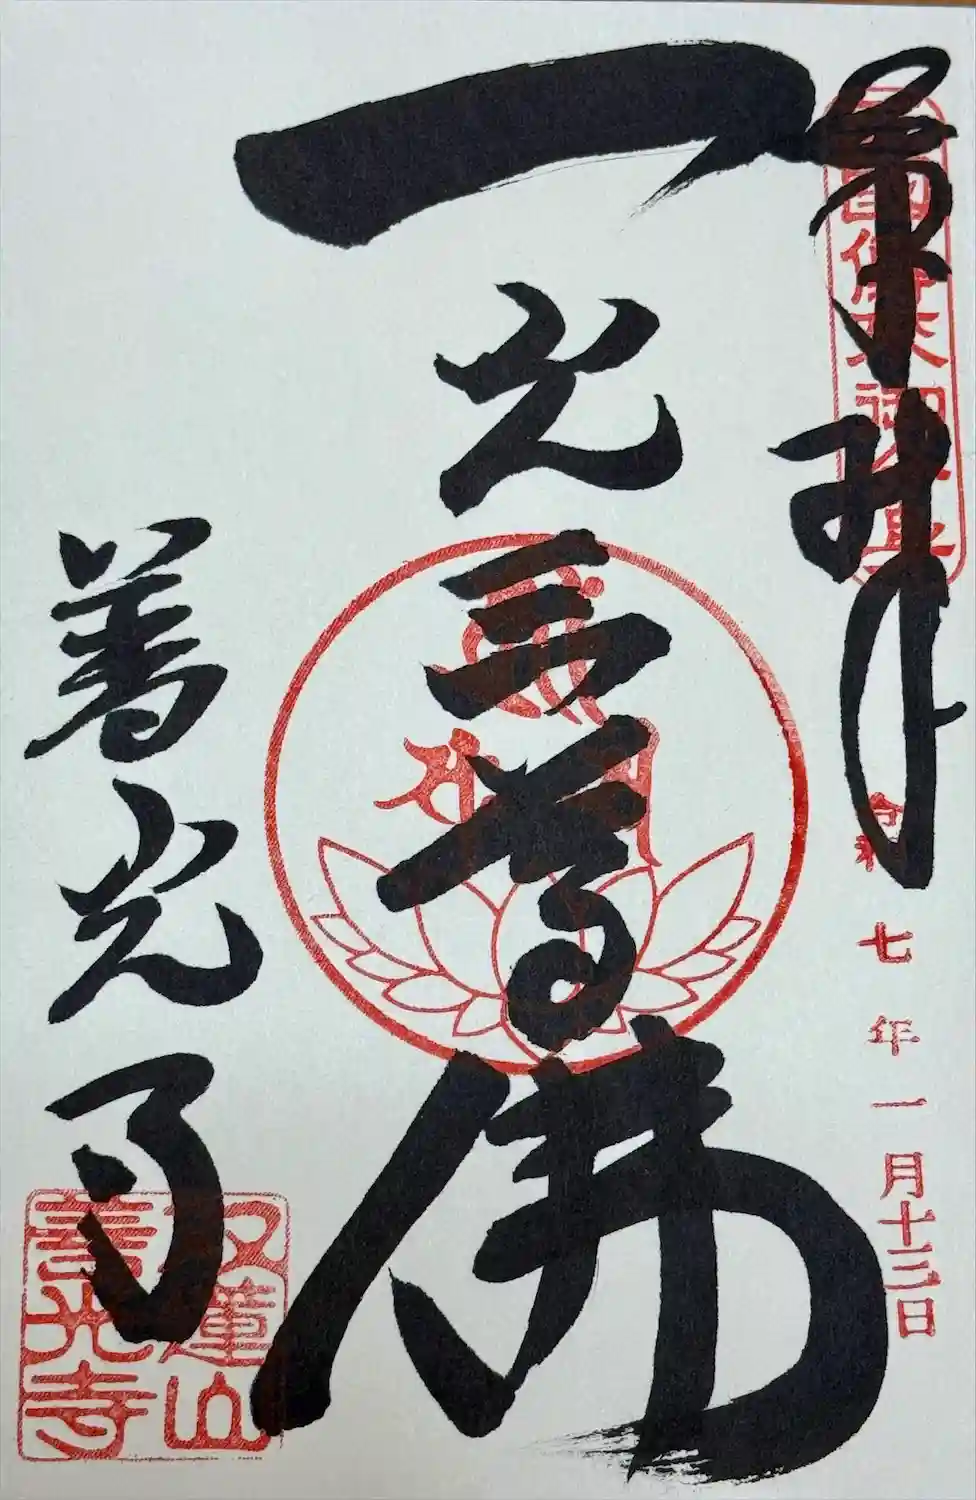 奉拝
令和七年一月十三日
一光三尊佛
善光寺
双蓮山
善光寺